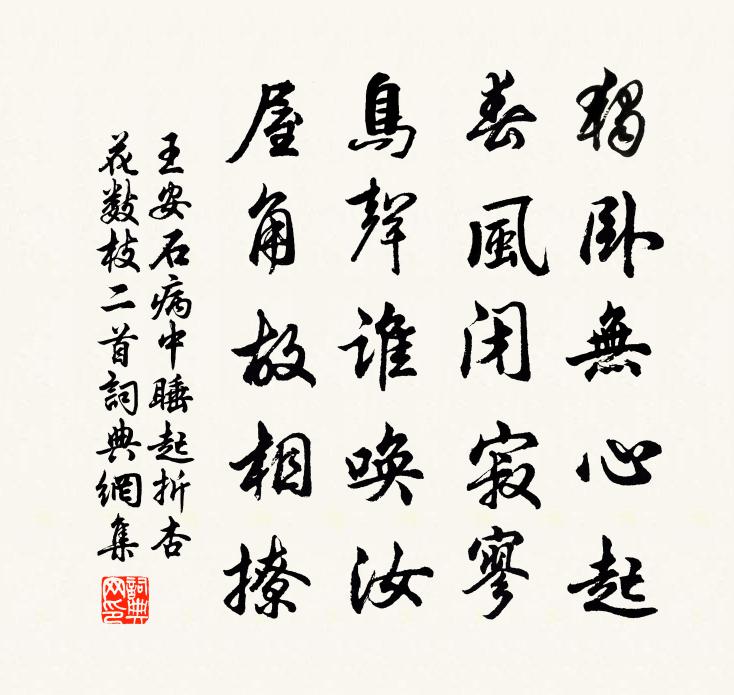 獨卧無心起
春風闭寂寥
鳥聲誰唤汝
屋角故相撩
王安石病中睡起折杏
花数枝二首詞典網集
詞典
网印